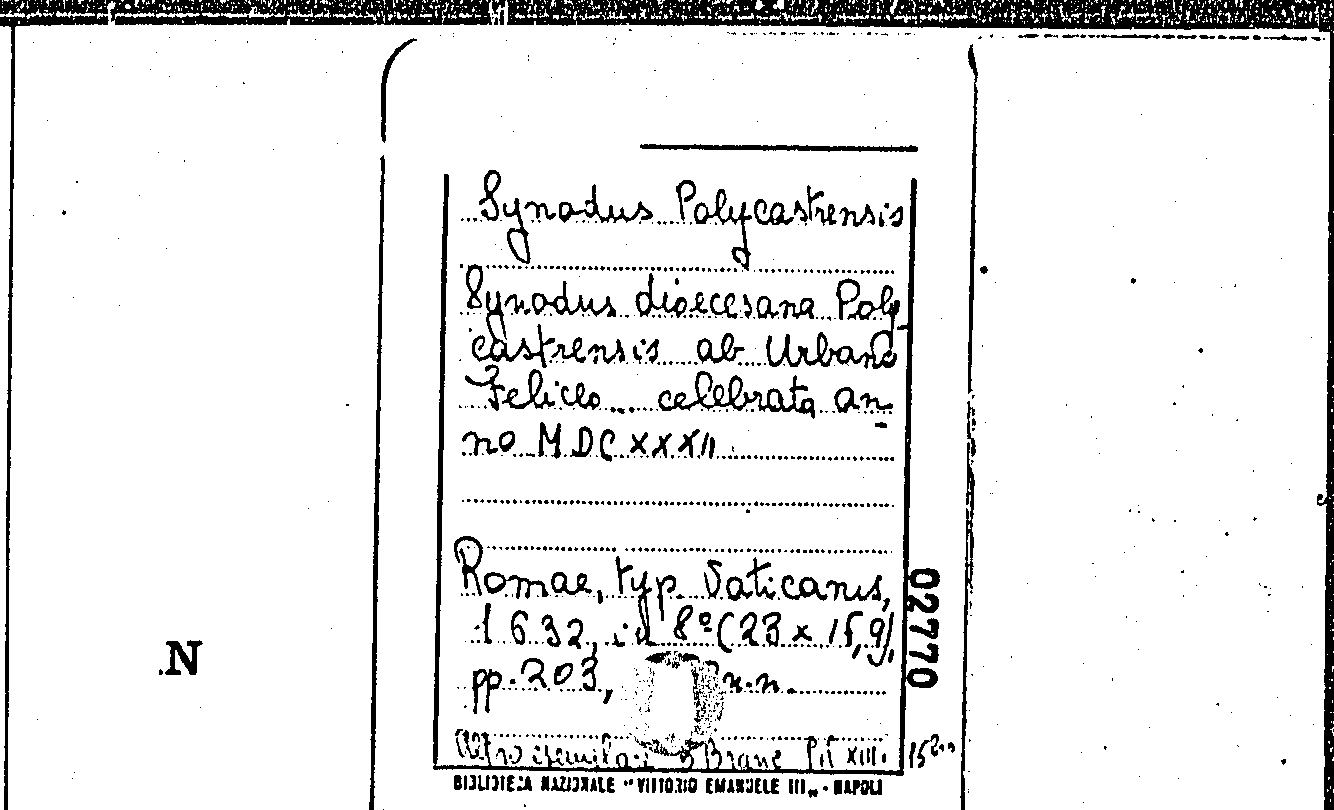 Synodus Polycastrensis
Synodus dioecesana Poly
castrensis ab Urbano
Feliceo... celebrata an-
no MDCXXXII.
Romae, typ. Vaticanis,
1632, id 8º (23 x 15,9),
pp. 203, n.n.
Altro esemplare Branc.
BIBLIOTECA NAZIONALE "VITTORIO EMANUELE III" - NAPOLI
02770
N